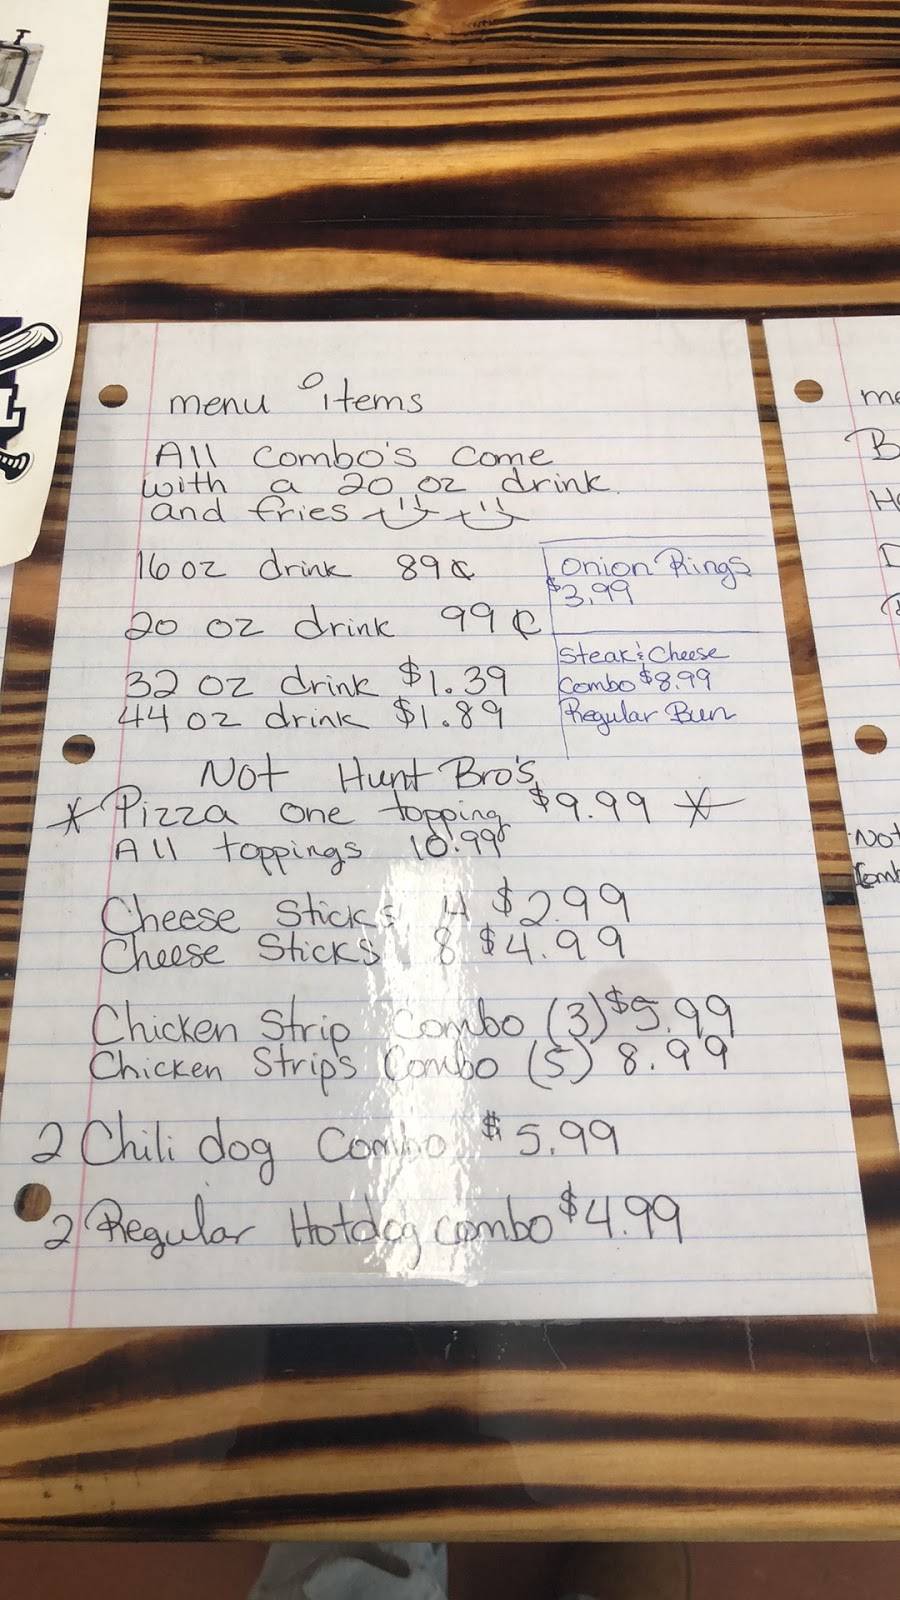 menu items
All Combo's Come
with a 20 oz drink.
and fries
16 oz drink 89¢
20 oz drink 99¢
32 oz drink $1.39
44 oz drink $1.89
Onion Rings
$3.99
Steak & Cheese
Combo $8.99
Regular Bun
Not Hunt Bro's
* Pizza one topping $9.99 *
All toppings 10.99
Cheese Sticks 4 $2.99
Cheese Sticks 8 $4.99
Chicken Strip Combo (3) $5.99
Chicken Strips Combo (5) 8.99
2 Chili dog Combo $5.99
2 Regular Hotdog combo $4.99
me
B
H
D
Not
Comb